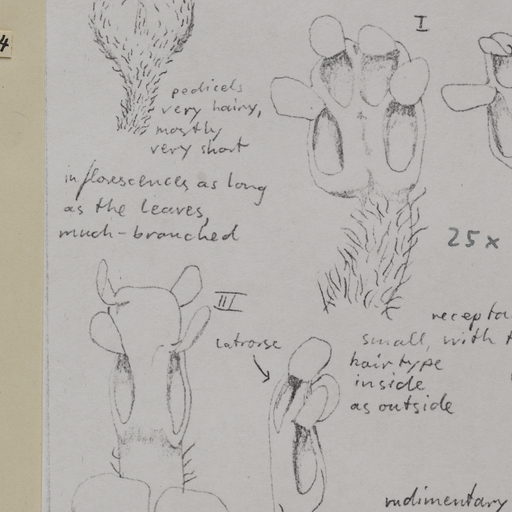 4
I
pedicels
very hairy,
mostly
very short
inflorescences as long
as the leaves,
much-branched
25x
III
latrorse
recepta
small, with t
hair type
inside
as outside
rudimentary